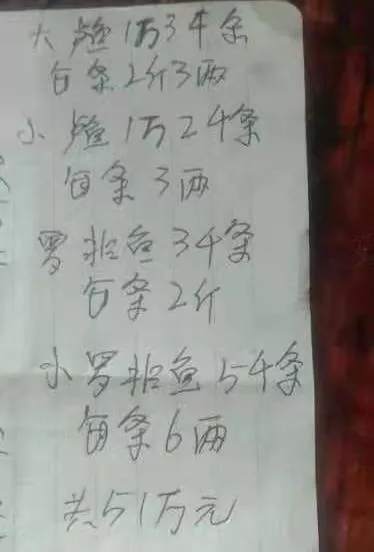 大 1万3千条
每条2斤3两
小 1万2千条
每条3两
罗非鱼3千条
每条2斤
小罗非鱼5千条
每条6两
共51万元